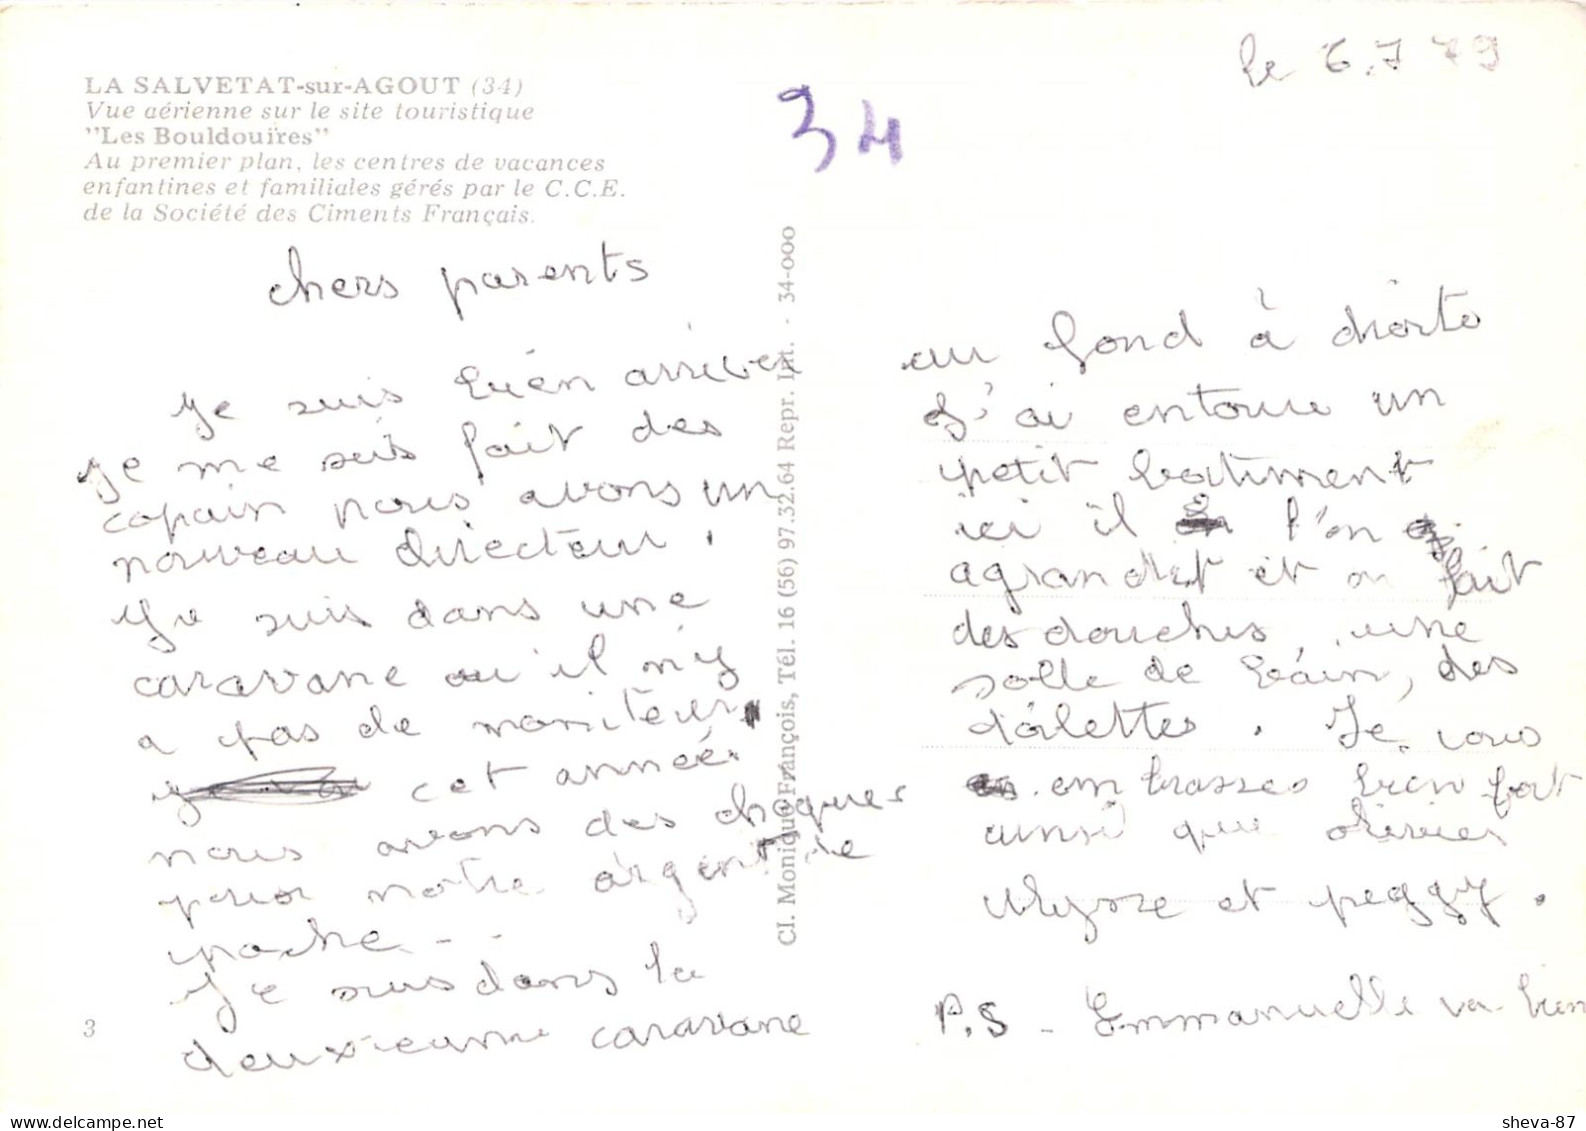 LA SALVETAT-sur-AGOUT (34)
Vue aérienne sur le site touristique
"Les Bouldouïres"
Au premier plan, les centres de vacances
enfantines et familiales gérés par le C.C.E.
de la Société des Ciments Français.
chers parents
Je suis bien arriver
Je me suis fait des
copain nous avons un
nouveau directeur.
Je suis dans une
caravane ou il n'y
a pas de moniteur
cet année.
nous avons des cheques
pour notre argent de
poche - - -
Je suis dans la
deuxieme caravane
3
Cl. Monique François, Tél. 16 (56) 97.32.64 Repr. Int. - 34-000
le 6.7 79
34
au fond à droite
J'ai entoure un
petit batiment
ici il l'on
agrandit et on fait
des douches, une
salle de bain, des
toilettes. Je vous
embrasses bien fort
ainsi que olivier
et peggy.
P.S - Emmanuelle va bien
sheva-87